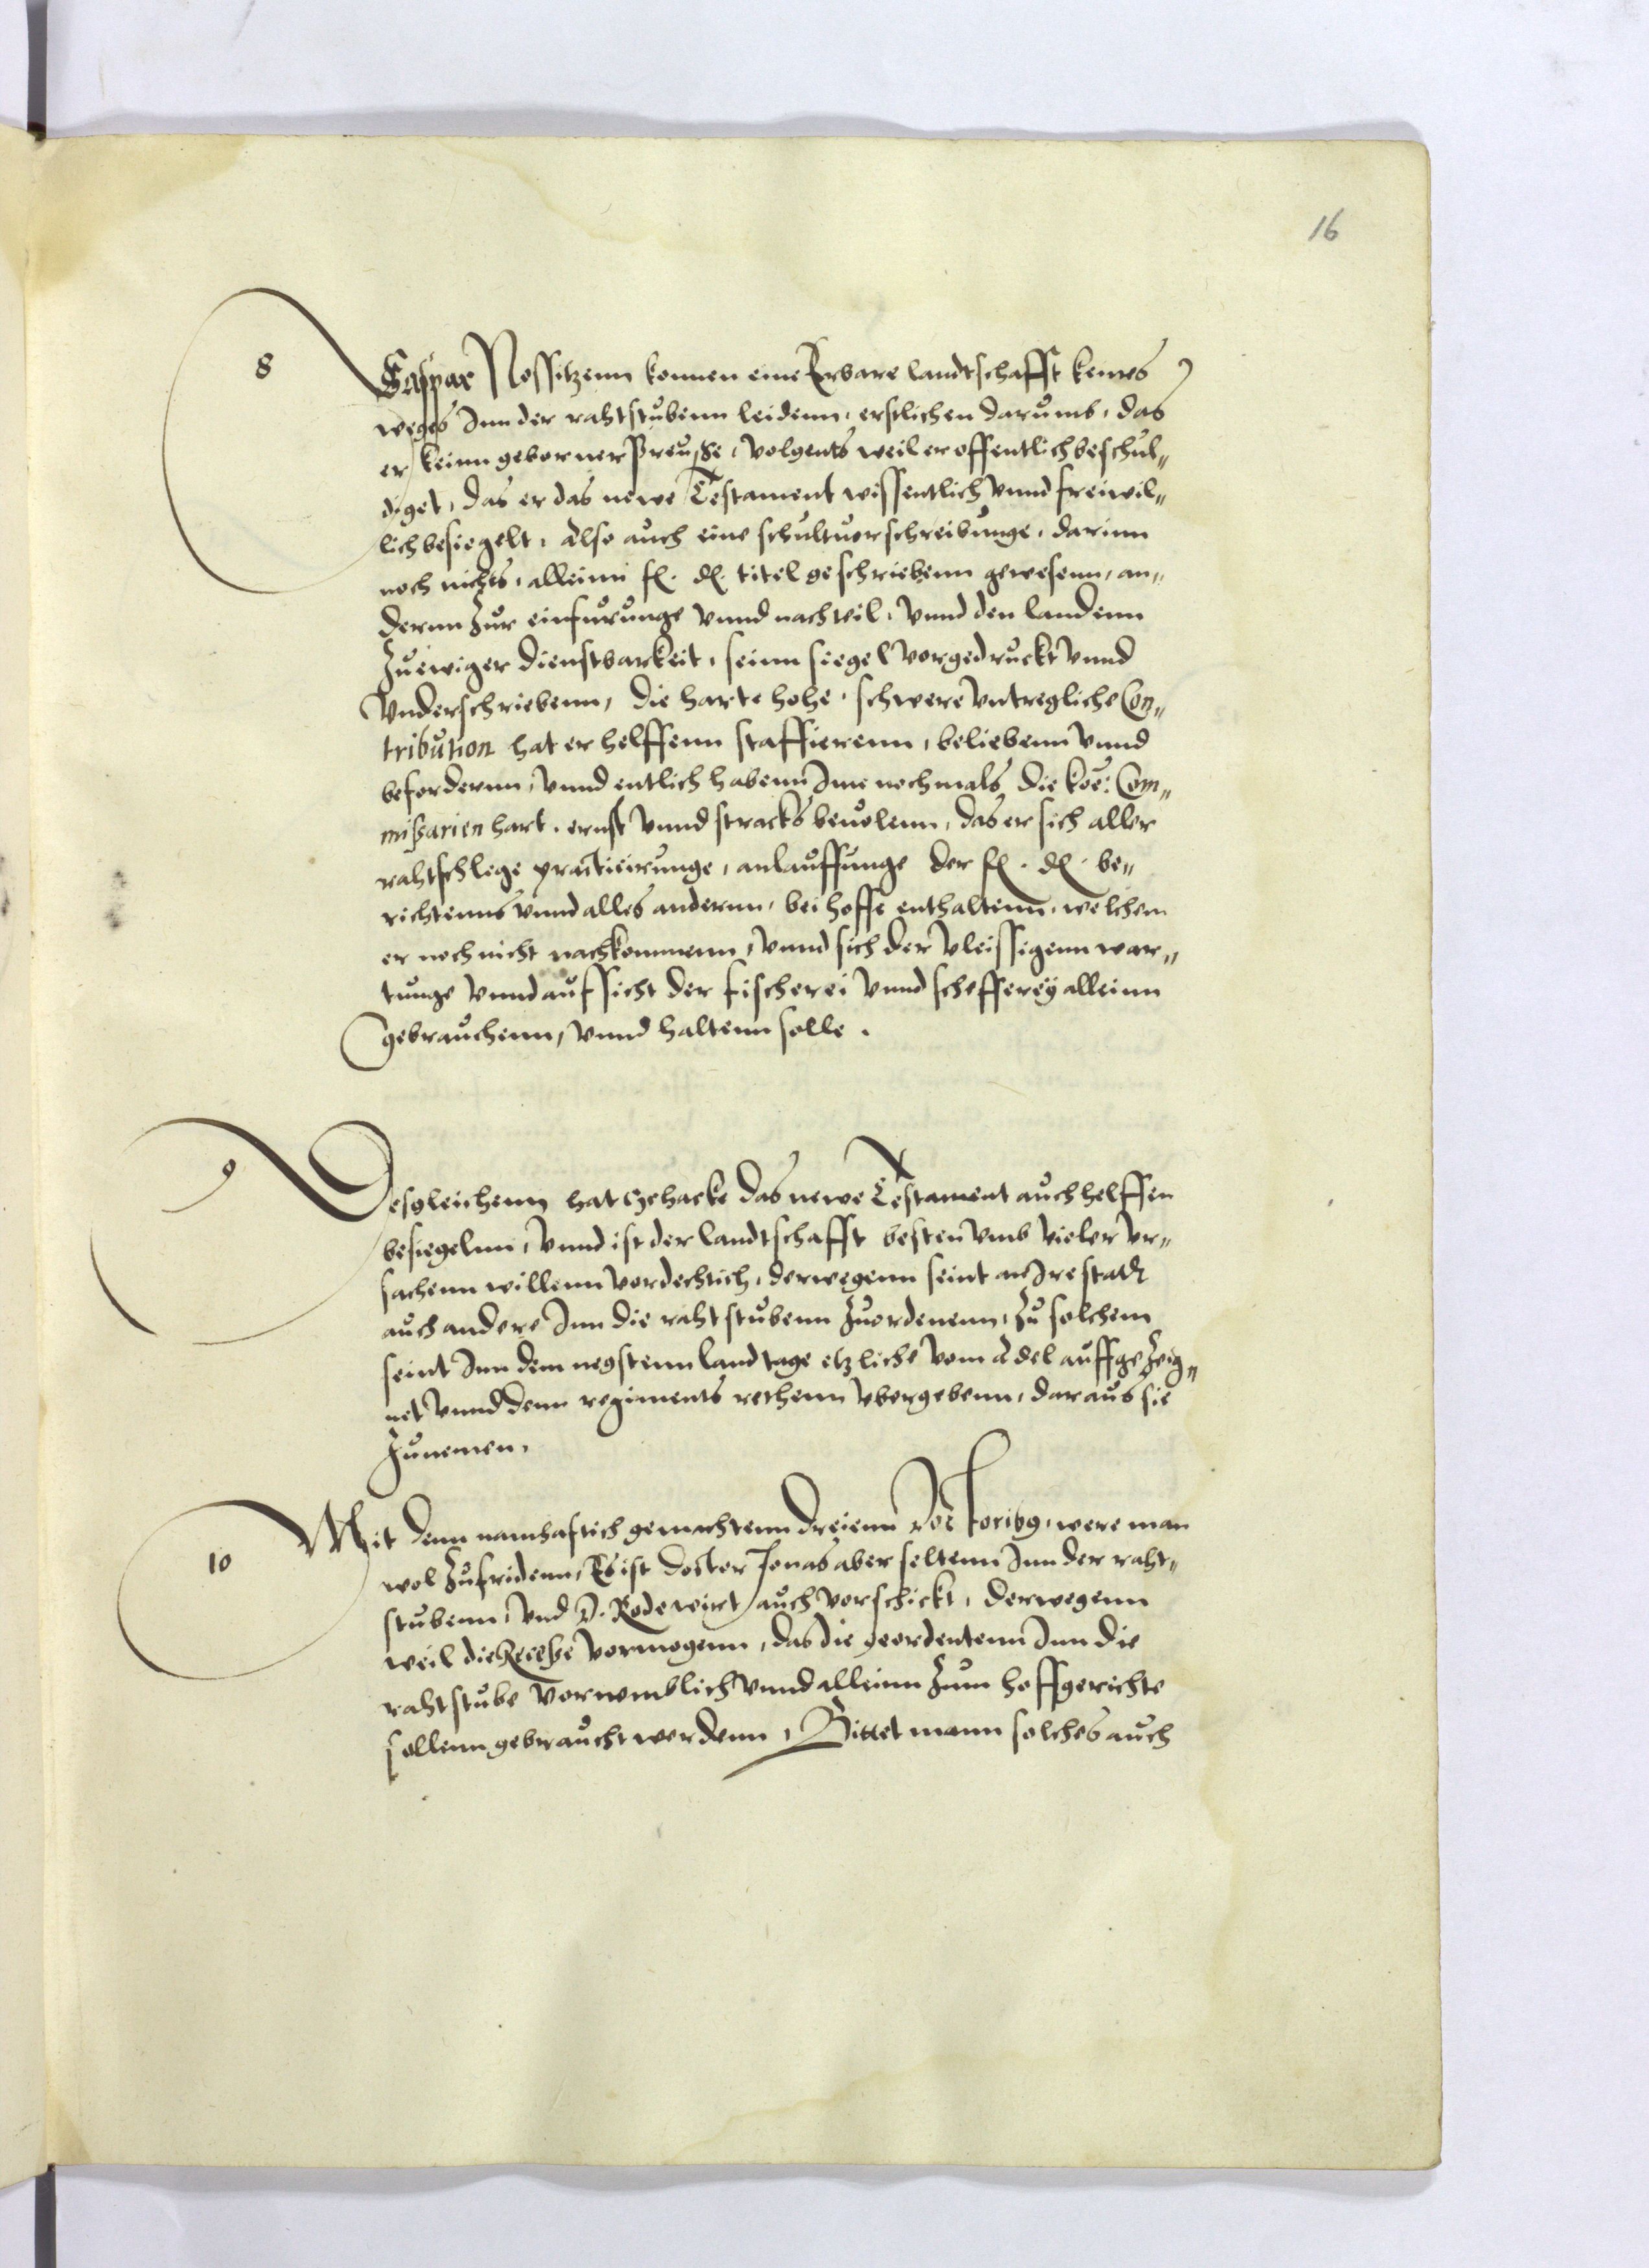 16
8
Caspar Nossitzenn konnen eine Erbare landtschafft keines
weges Inn der rahtstubenn leidenn, erstlichen darumb, das
er keinn geborner Preusse, volgents weil er offentlich beschul„
diget, das er das newe Testament wissentlich vnnd freiwil„
lich besiegelt, Also auch eine schultvorschreibunge, darinn
noch nichts, alleinn f. d. titel geschriebenn gewesenn, an„
dernn zur einfurunge vnnd nachteil, vnnd den landenn
zu ewiger dienstbarkeit, seinn siegel vorgedruckt vnnd
vnderschriebenn, die harte hohe, schwere vntregliche Con„
tribution hat er helffenn staffierenn, beliebenn vnnd
befordernn, vnnd entlich habenn Ime nochmals die koe: Com„
mißarien hart, ernst vnnd stracks beuolenn, das er sich aller
rahtschlege practicirunge, anlauffunge der f. d. be„
richtenns vnnd alles andernn, bei hoffe enthaltenn, welchem
er noch nicht nachkommenn, vnnd sich der vleissigenn war„
tunge vnnd auffsicht der fischerei vnnd schefferey alleinn
gebrauchenn, vnnd haltenn solle.
9
Desgleichenn hat Gehacke das newe Testament auch helffen
besiegelnn, vnnd ist der landtschafft besten vmb vieler vr„
sachenn willenn vordechtich, derwegenn seint an Ire stadt
auch andere Inn die rahtstubenn zuordenenn, zu solchem
seint Inn dem negstenn landtage etzliche vom Adel auffgezeig„
net vnnd denn regiments rethenn vbergebenn, daraus sie
zunemen.
10
Mit denn namhafftich gemachtenn dreienn doctoribus, were man
wol zufridenn, Es ist doctor Jonas aber seltenn Inn der raht„
stubenn, vnd D. Rodewirt auch vorschickt, derwegenn
weil die Receße vormogenn, das die geordentenn Inn die
rahtstube vornemblich vnnd alleinn zum hoffgerichte
sollenn gebraucht werdenn, Bittet mann solches auch